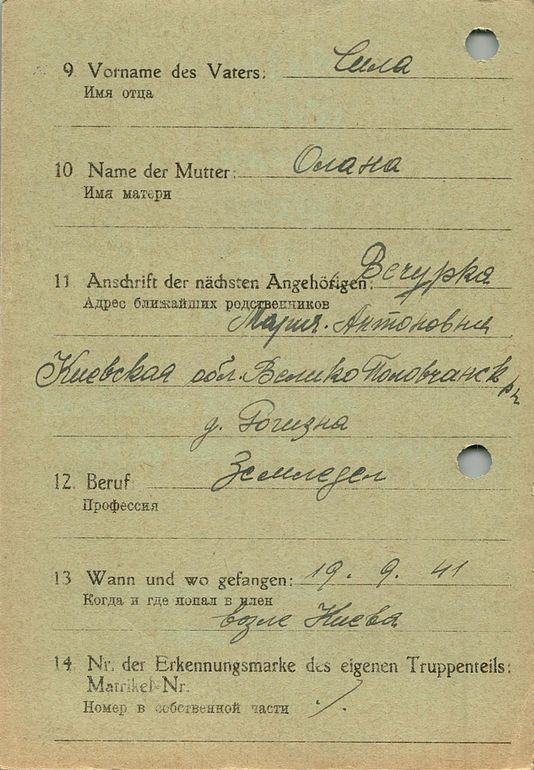 9 Vorname des Vaters: Сила
Имя отца
10 Name der Mutter: Олана
Имя матери
11 Anschrift der nächsten Angehörigen: Вечурка
Адрес ближайших родственников
Мария. Антоновна
Киевская обл. Велико Половчанск р-н
д. Рогизна
12 Beruf Земледел
Профессия
13 Wann und wo gefangen: 19. 9. 41
Когда и где попал в плен
возле Киева
14 Nr. der Erkennungsmarke des eigenen Truppenteils:
Matrikel-Nr.
Номер в собственной части ./.